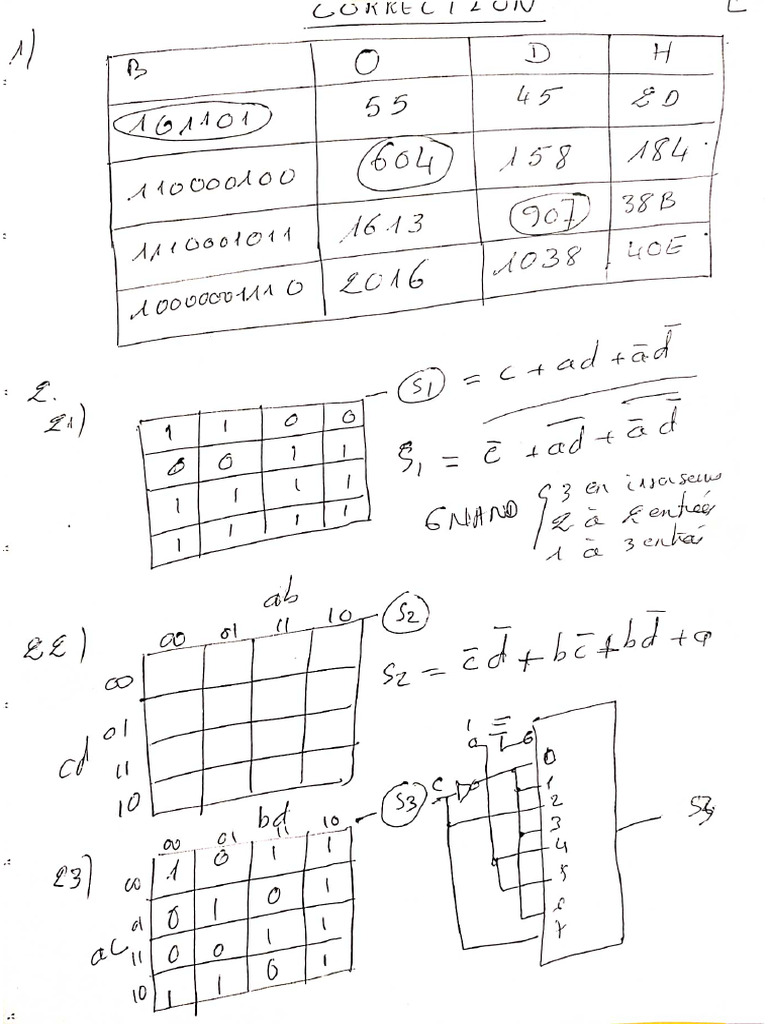 CORRECTION
1)
B O D H
101101 55 45 2D
110000100 604 158 184
1110001011 1613 907 38B
10000001110 2016 1038 40E
2.
21)
S1 = c + ad + a̅d̅
1 1 0 0
0 0 1 1
1 1 1 1
1 1 1 1
S1 = c̅ + a̅d̅ + a̅ d̅
6 NAND
3 en inverseurs
2 à 2 entrées
1 à 3 entré
22)
ab
00 01 11 10
S2
00
01
cd 11
10
S2 = c̅d̅ + bc̅ + bd̅ + a
23)
bd
00 01 11 10
S3
00 1 0 1 1
0 1 0 1
ac 11 0 0 1 1
10 1 1 0 1
1
a
C
0
1
2
3
4
5
6
7
S3